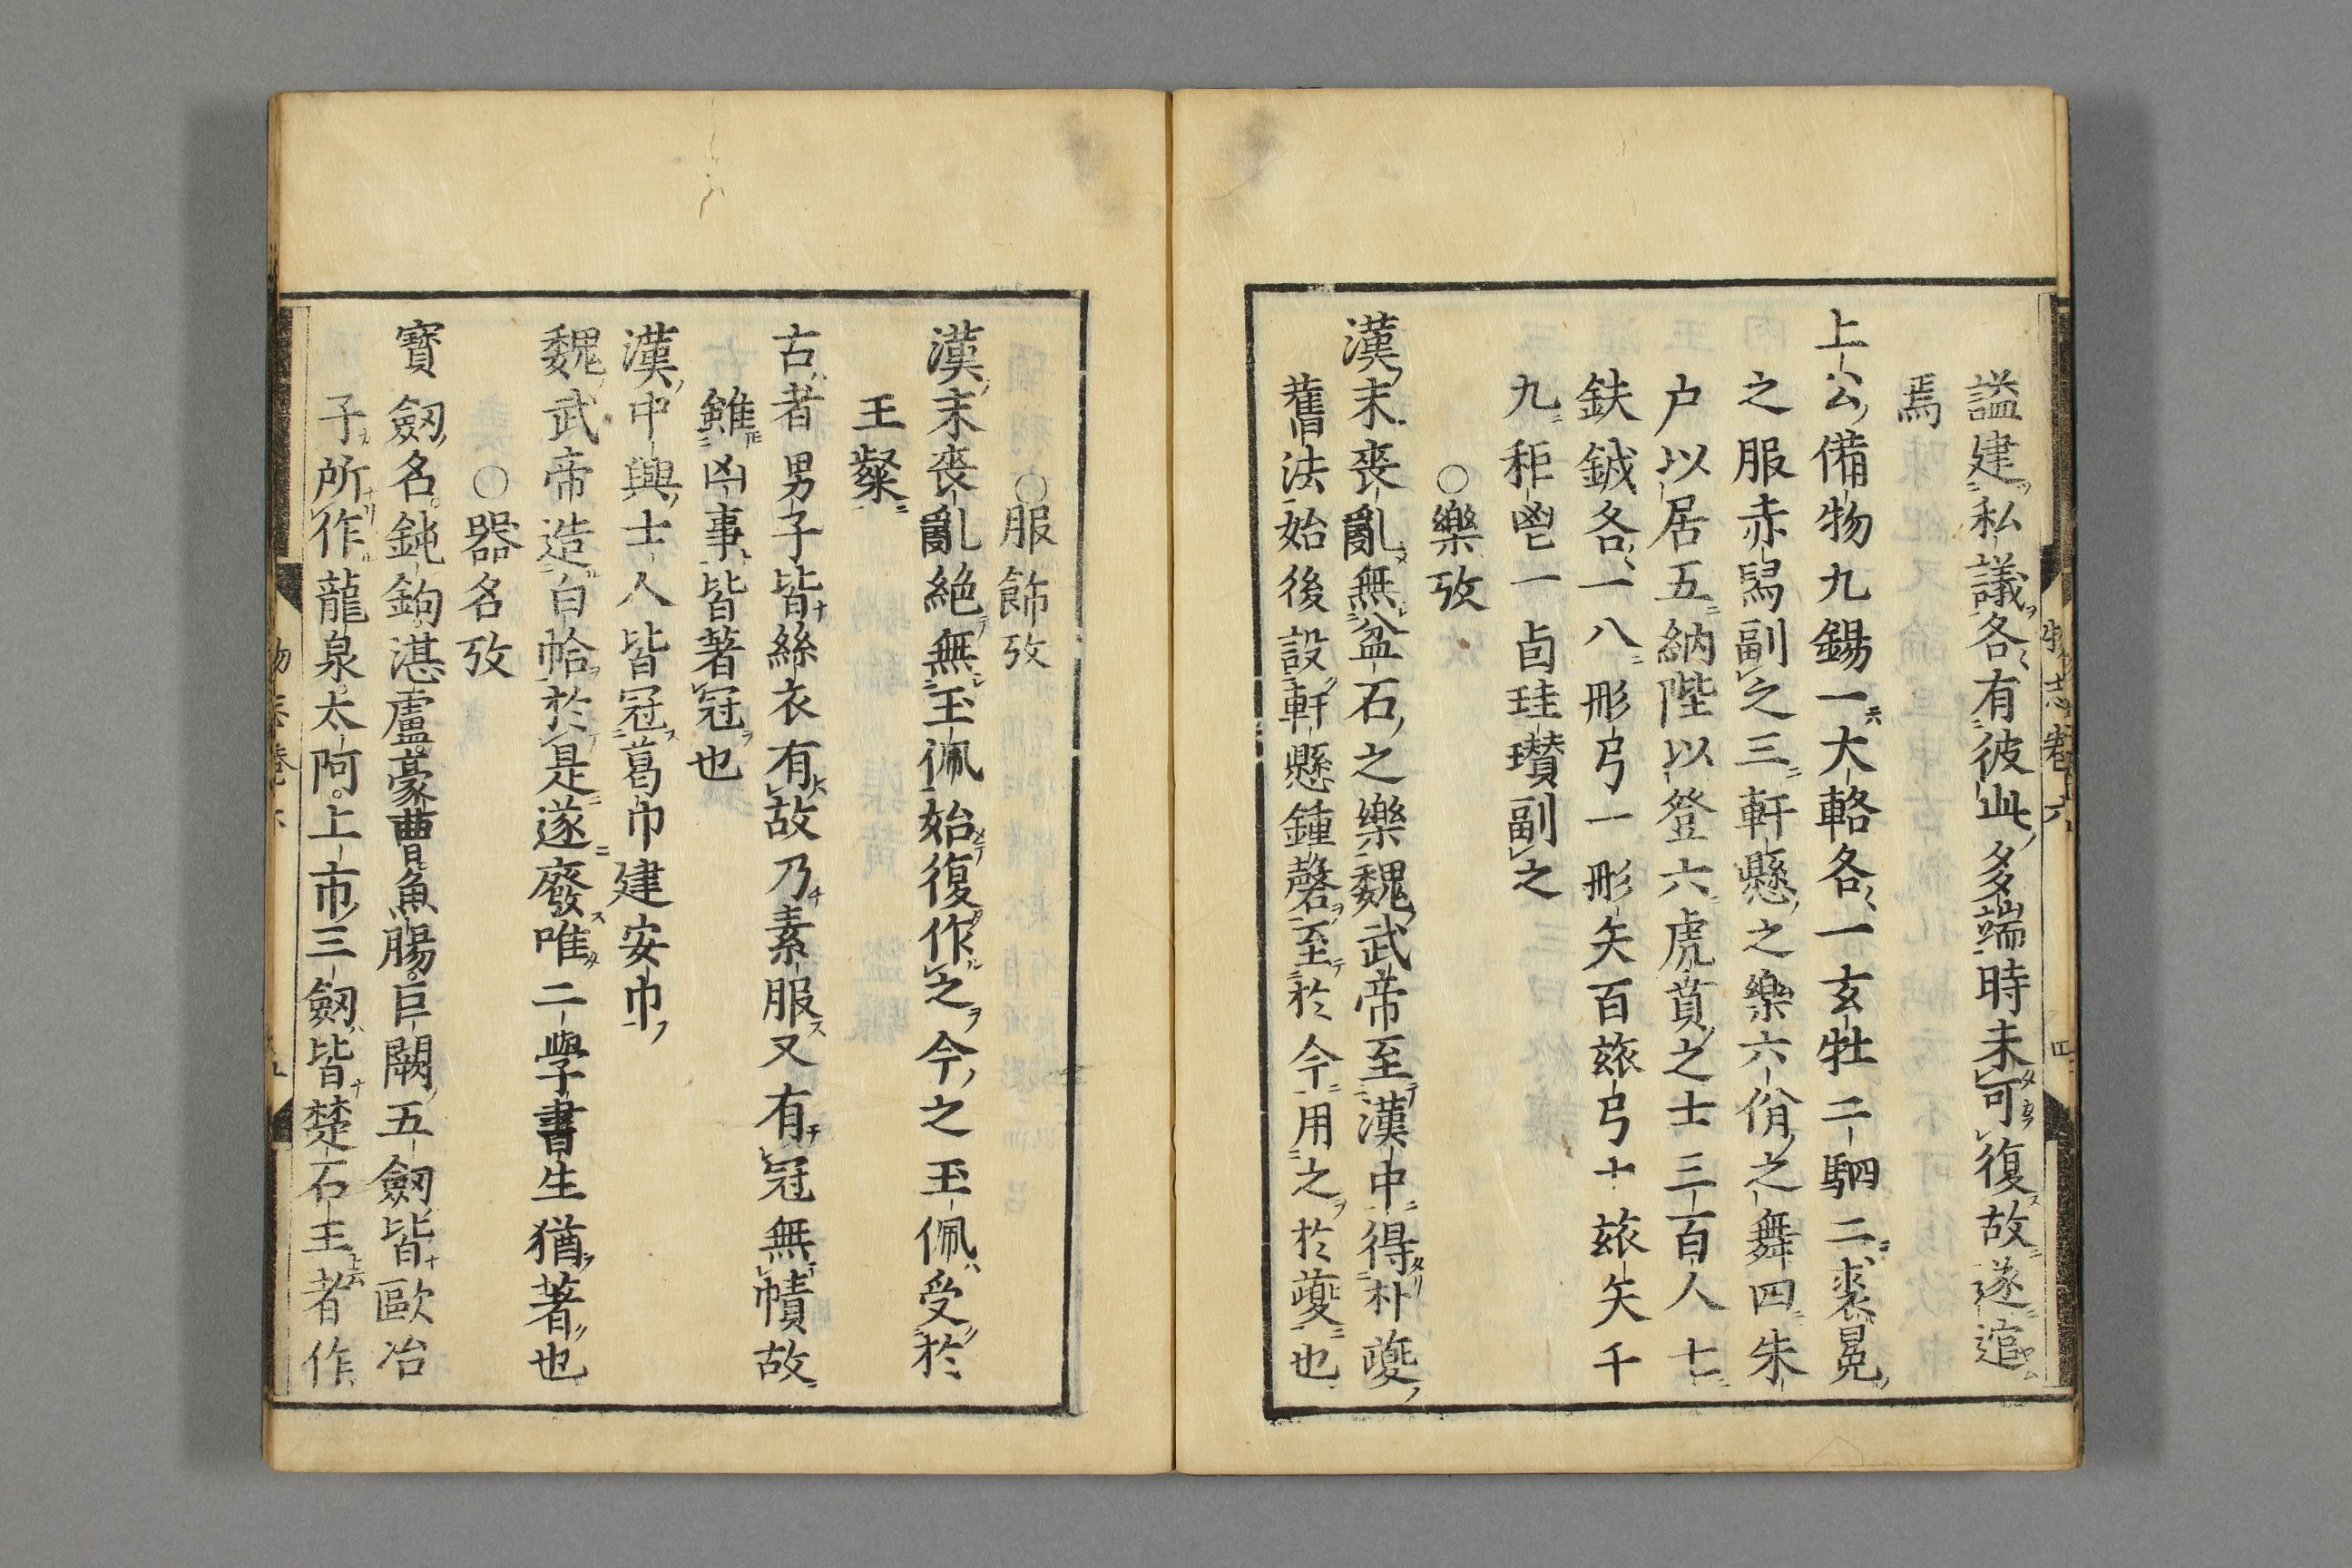 謚建私議各有彼此多端時未可復故遂逭
焉
上公備物九錫一大輅各一玄牡二駟二裘冕
之服赤舄副之三軒懸之樂六佾之舞四朱
户以居五納陛以登六虎賁之士三百人七
鈇鉞各一八彤弓一彤矢百玈弓十玈矢千
九秬鬯一卣珪瓚副之
○樂攷
漢末喪亂無金石之樂魏武帝至漢中得朴夔
舊法始後設軒懸鍾磬至於今用之於夔也
○服飾攷
漢末喪亂絶無玉佩始復作之今之玉佩受於
王粲
古者男子皆絲衣有故乃素服又有冠無幘故
雖凶事皆著冠也
漢中興士人皆冠葛巾建安巾
魏武帝造白帢於是遂廢唯二學書生猶著也
○器名攷
寶劔名鈍鉤湛盧豪曹魚腸巨闕五劔皆歐冶
子所作龍泉太阿上市三劔皆楚石王者作